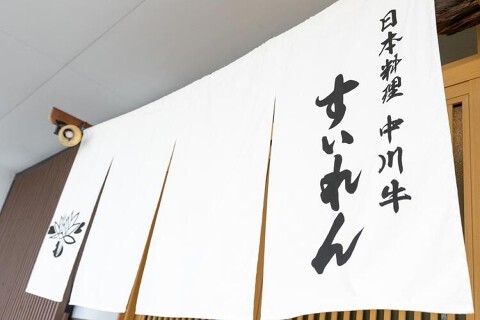 日本料理 中川牛
すいれん